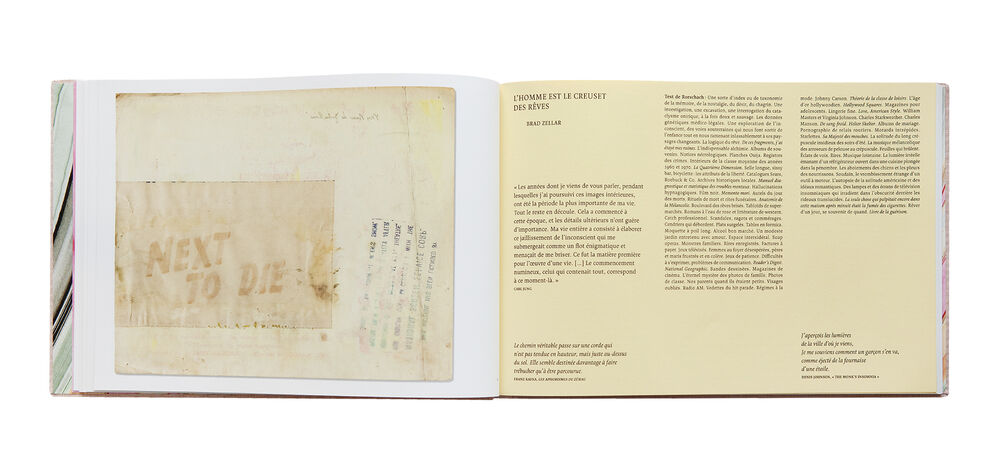 NEXT
TO DIE
L'HOMME EST LE CREUSET
DES RÊVES
BRAD ZELLAR
« Les années dont je viens de vous parler, pendant
lesquelles j'ai poursuivi ces images intérieures,
ont été la période la plus importante de ma vie.
Tout le reste en découle. Cela a commencé à
cette époque, et les détails ultérieurs n'ont guère
d'importance. Ma vie entière a consisté à élaborer
ce jaillissement de l'inconscient qui me
submergeait comme un flot énigmatique et
menaçait de me briser. Ce fut la matière première
pour l'œuvre d'une vie. [...] Le commencement
numineux, celui qui contenait tout, correspond
à ce moment-là. »
CARL JUNG
Le chemin véritable passe sur une corde qui
n'est pas tendue en hauteur, mais juste au-dessus
du sol. Elle semble destinée davantage à faire
trébucher qu'à être parcourue.
FRANZ KAFKA, LES APHORISMES DE ZÜRAU
Test de Rorschach : Une sorte d'index ou de taxonomie
de la mémoire, de la nostalgie, du désir, du chagrin. Une
investigation, une excavation, une interrogation du cata-
clysme onirique, à la fois doux et sauvage. Les données
génétiques médico-légales. Une exploration de l'in-
conscient, des voies souterraines qui nous font sortir de
l'enfance tout en nous ramenant inlassablement à ses pay-
sages changeants. La logique du rêve. De ces fragments, j'ai
étayé mes ruines. L'indispensable alchimie. Albums de sou-
venirs. Notices nécrologiques. Planches Ouija. Registres
des crimes. Intérieurs de la classe moyenne des années
1960 et 1970. La Quatrième Dimension. Selle longue, sissy
bar, bicyclette : les attributs de la liberté. Catalogues Sears,
Roebuck & Co. Archives historiques locales. Manuel diag-
nostique et statistique des troubles mentaux. Hallucinations
hypnagogiques. Film noir. Memento mori. Autels du jour
des morts. Rituels de mort et rites funéraires. Anatomie de
la Mélancolie. Boulevard des rêves brisés. Tabloïds de super-
marchés. Romans à l'eau de rose et littérature de western.
Catch professionnel. Scandales, ragots et commérages.
Cendriers qui débordent. Plats surgelés. Tables en formica.
Moquette à poil long. Alcool bon marché. Un modeste
jardin entretenu avec amour. Espace intersidéral. Soap
operas. Monstres familiers. Rires enregistrés. Factures à
payer. Jeux télévisés. Femmes au foyer désespérées, pères
et maris frustrés et en colère. Jeux de patience. Difficultés
à s'exprimer, problèmes de communication. Reader's Digest.
National Geographic. Bandes dessinées. Magazines de
cinéma. L'éternel mystère des photos de famille. Photos
de classe. Nos parents quand ils étaient petits. Visages
oubliés. Radio AM. Vedettes du hit parade. Régimes à la
mode. Johnny Carson. Théorie de la classe de loisirs. L'âge
d'or hollywoodien. Hollywood Squares. Magazines pour
adolescents. Lingerie fine. Love, American Style. William
Masters et Virginia Johnson. Charles Starkweather. Charles
Manson. De sang-froid. Helter Skelter. Albums de mariage.
Pornographie de relais routiers. Motards intrépides.
Starlettes. Sa Majesté des mouches. La solitude du long cré-
puscule insidieux des soirs d'été. La musique mélancolique
des arroseurs de pelouse au crépuscule. Feuilles qui brûlent.
Éclats de voix. Rires. Musique lointaine. La lumière irréelle
émanant d'un réfrigérateur ouvert dans une cuisine plongée
dans la pénombre. Les aboiements des chiens et les pleurs
des nourrissons. Soudain, le vrombissement étrange d'un
outil à moteur. L'autopsie de la solitude américaine et des
idéaux romantiques. Des lampes et des écrans de télévision
insomniaques qui irradient dans l'obscurité derrière les
rideaux translucides. La seule chose qui palpitait encore dans
cette maison après minuit était la fumée des cigarettes. Rêver
d'un jour, se souvenir de quand. Livre de la guérison.
J'aperçois les lumières
de la ville d'où je viens,
Je me souviens comment un garçon s'en va,
comme éjecté de la fournaise
d'une étoile.
DENIS JOHNSON, « THE MONK'S INSOMNIA »